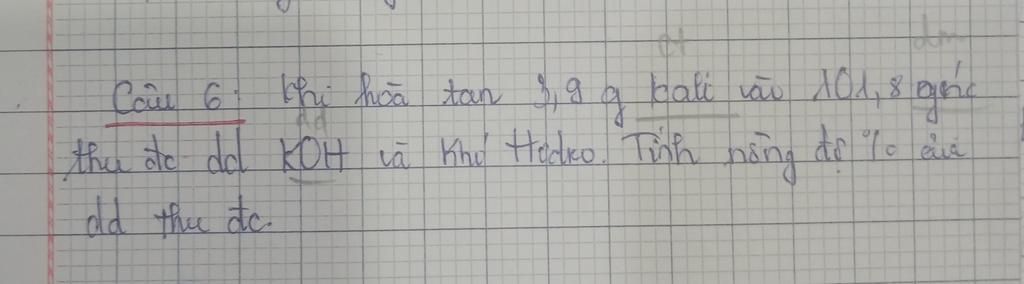 Câu 6: Khi hoà tan 3,9 g kali vào 101,8 g nước
thu đc dd KOH và khí Hiđro. Tính nồng độ % của
dd thu đc.